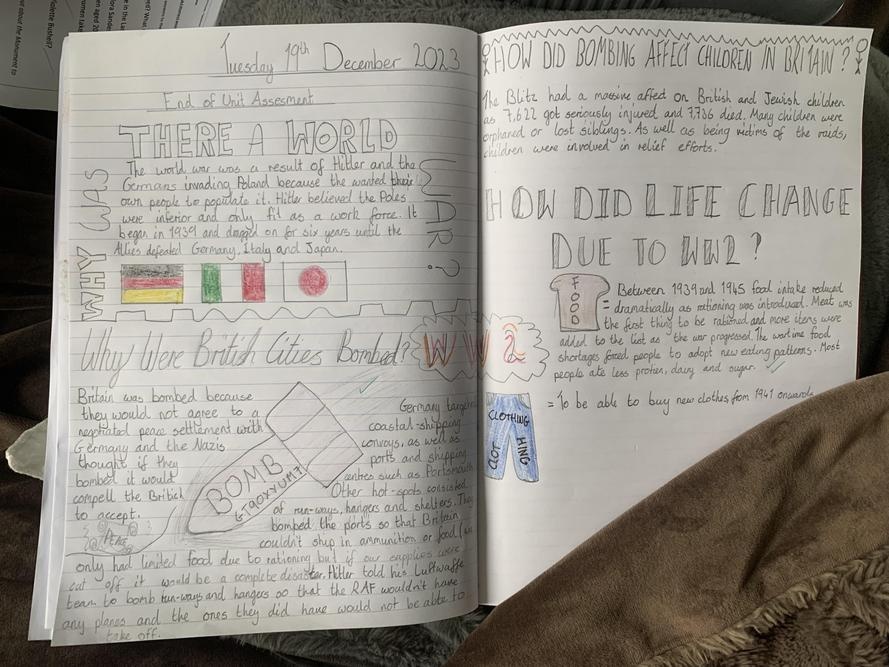 Tuesday 19th December 2023
End of Unit Assesment
WHY WAS
THERE A WORLD
WAR?
The world war was a result of Hitler and the
Germans invading Poland because the wanted their
own people to populate it. Hitler believed the Poles
were inferior and only fit as a work force. It
began in 1939 and dragged on for six years until the
Allies defeated Germany, Italy and Japan.
Why Were British Cities Bombed?
WW2
Britain was bombed because
they would not agree to a
negotiated peace settlement with
Germany and the Nazis
thought if they
bombed it would
compell the British
to accept.
PEACE
BOMB
GT90XYUM7
Germany targeted
coastal-shipping
convoys, as well as
ports and shipping
centres such as Portsmouth
Other hot-spots consisted
of run-ways, hangers and shelters. They
bombed the ports so that Britain
couldn't ship in ammunition or food (we
only had limited food due to rationing but if our supplies were
cut off it would be a complete disaster. Hitler told his Luftwaffe
team to bomb run-ways and hangers so that the RAF wouldn't have
any planes and the ones they did have would not be able to
take off.
HOW DID BOMBING AFFECT CHILDREN IN BRITAIN?
The Blitz had a massive affect on British and Jewish children
as 7,622 got seriously injured and 7,736 died. Many children were
orphaned or lost siblings. As well as being victims of the raids,
children were involved in relief efforts.
HOW DID LIFE CHANGE
DUE TO WW2?
FOOD
= Between 1939 and 1945 food intake reduced
dramatically as rationing was introduced. Meat was
the first thing to be rationed and more items were
added to the list as the war progressed. The wartime food
shortages forced people to adopt new eating patterns. Most
people ate less protien, dairy and sugar.
CLOTHING
= To be able to buy new clothes from 1941 onwards